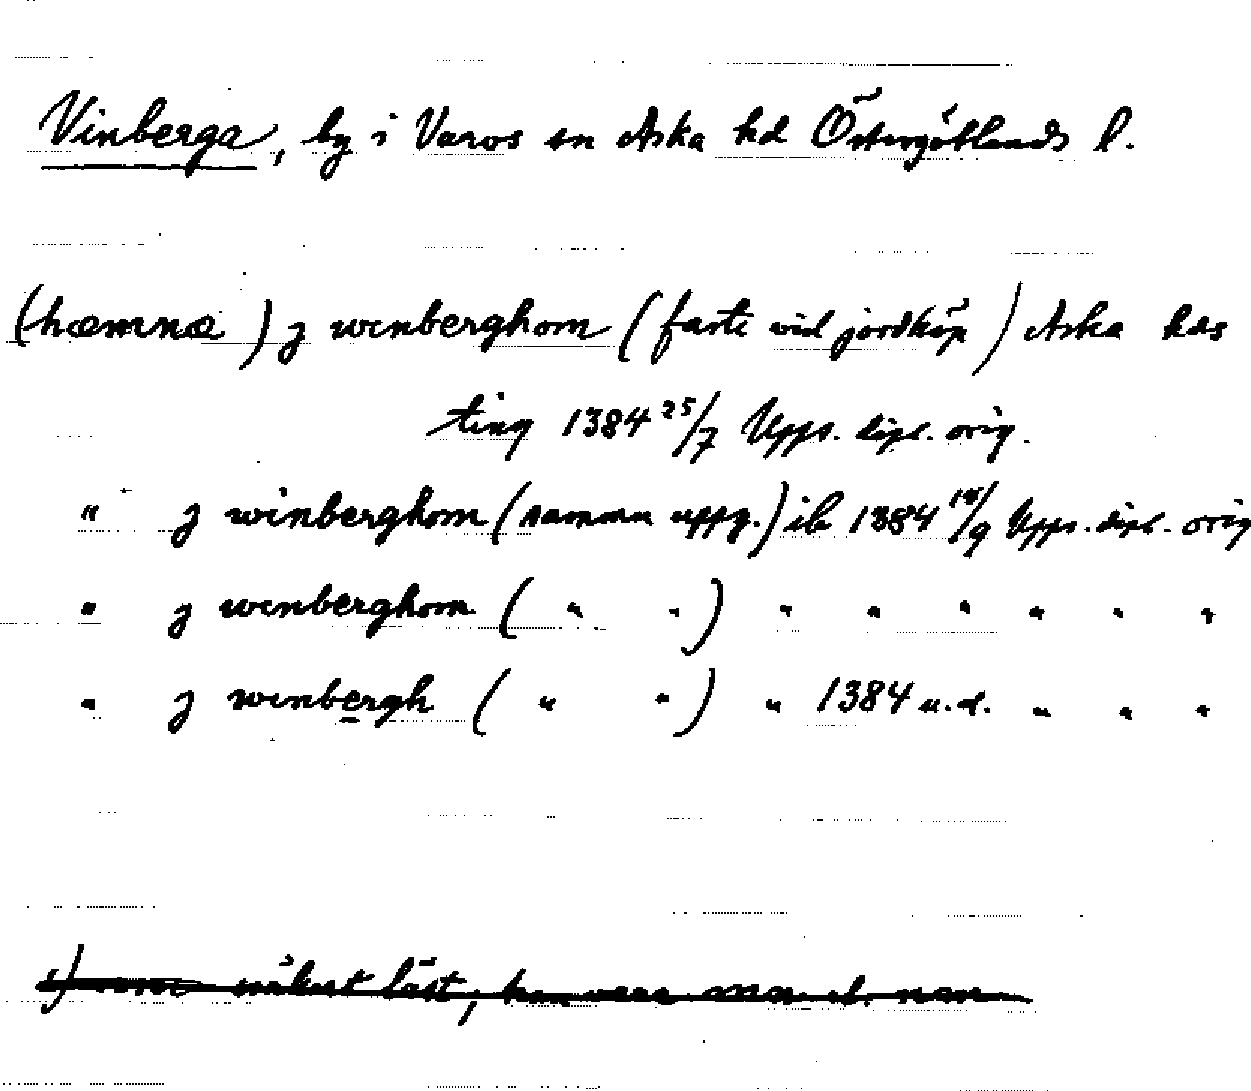 Vinberga, by i Varvs sn Aska hd Östergötlands l.
(hæmnæ) j winberghom (faste vid jordköp) Aska hds
ting 1384 25/7 Upps. dipl. orig.
" j winberghom (samma uppg.) ib 1384 19/9 Upps. dipl. orig
" j winberghom ( " " ) " " " " " "
" j winbergh ( " " ) " 1384 u.d. " " "
osäkert läst, kan vara